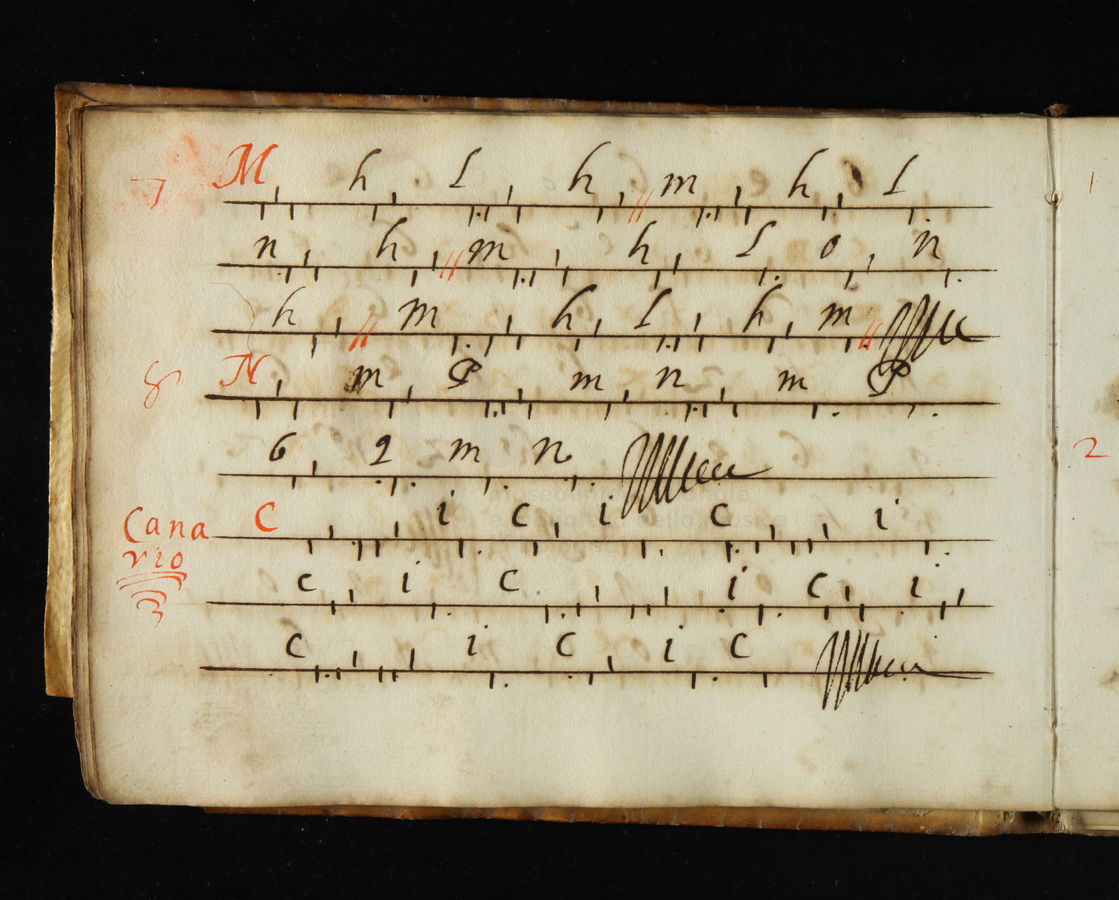 7 M h L h // m h L
n h // m h L o n
h // m h L h m //
8 N m P m n m P
6 2 m n
Cana C i C i C i
rio C i C i C i
C i C i C
1
2